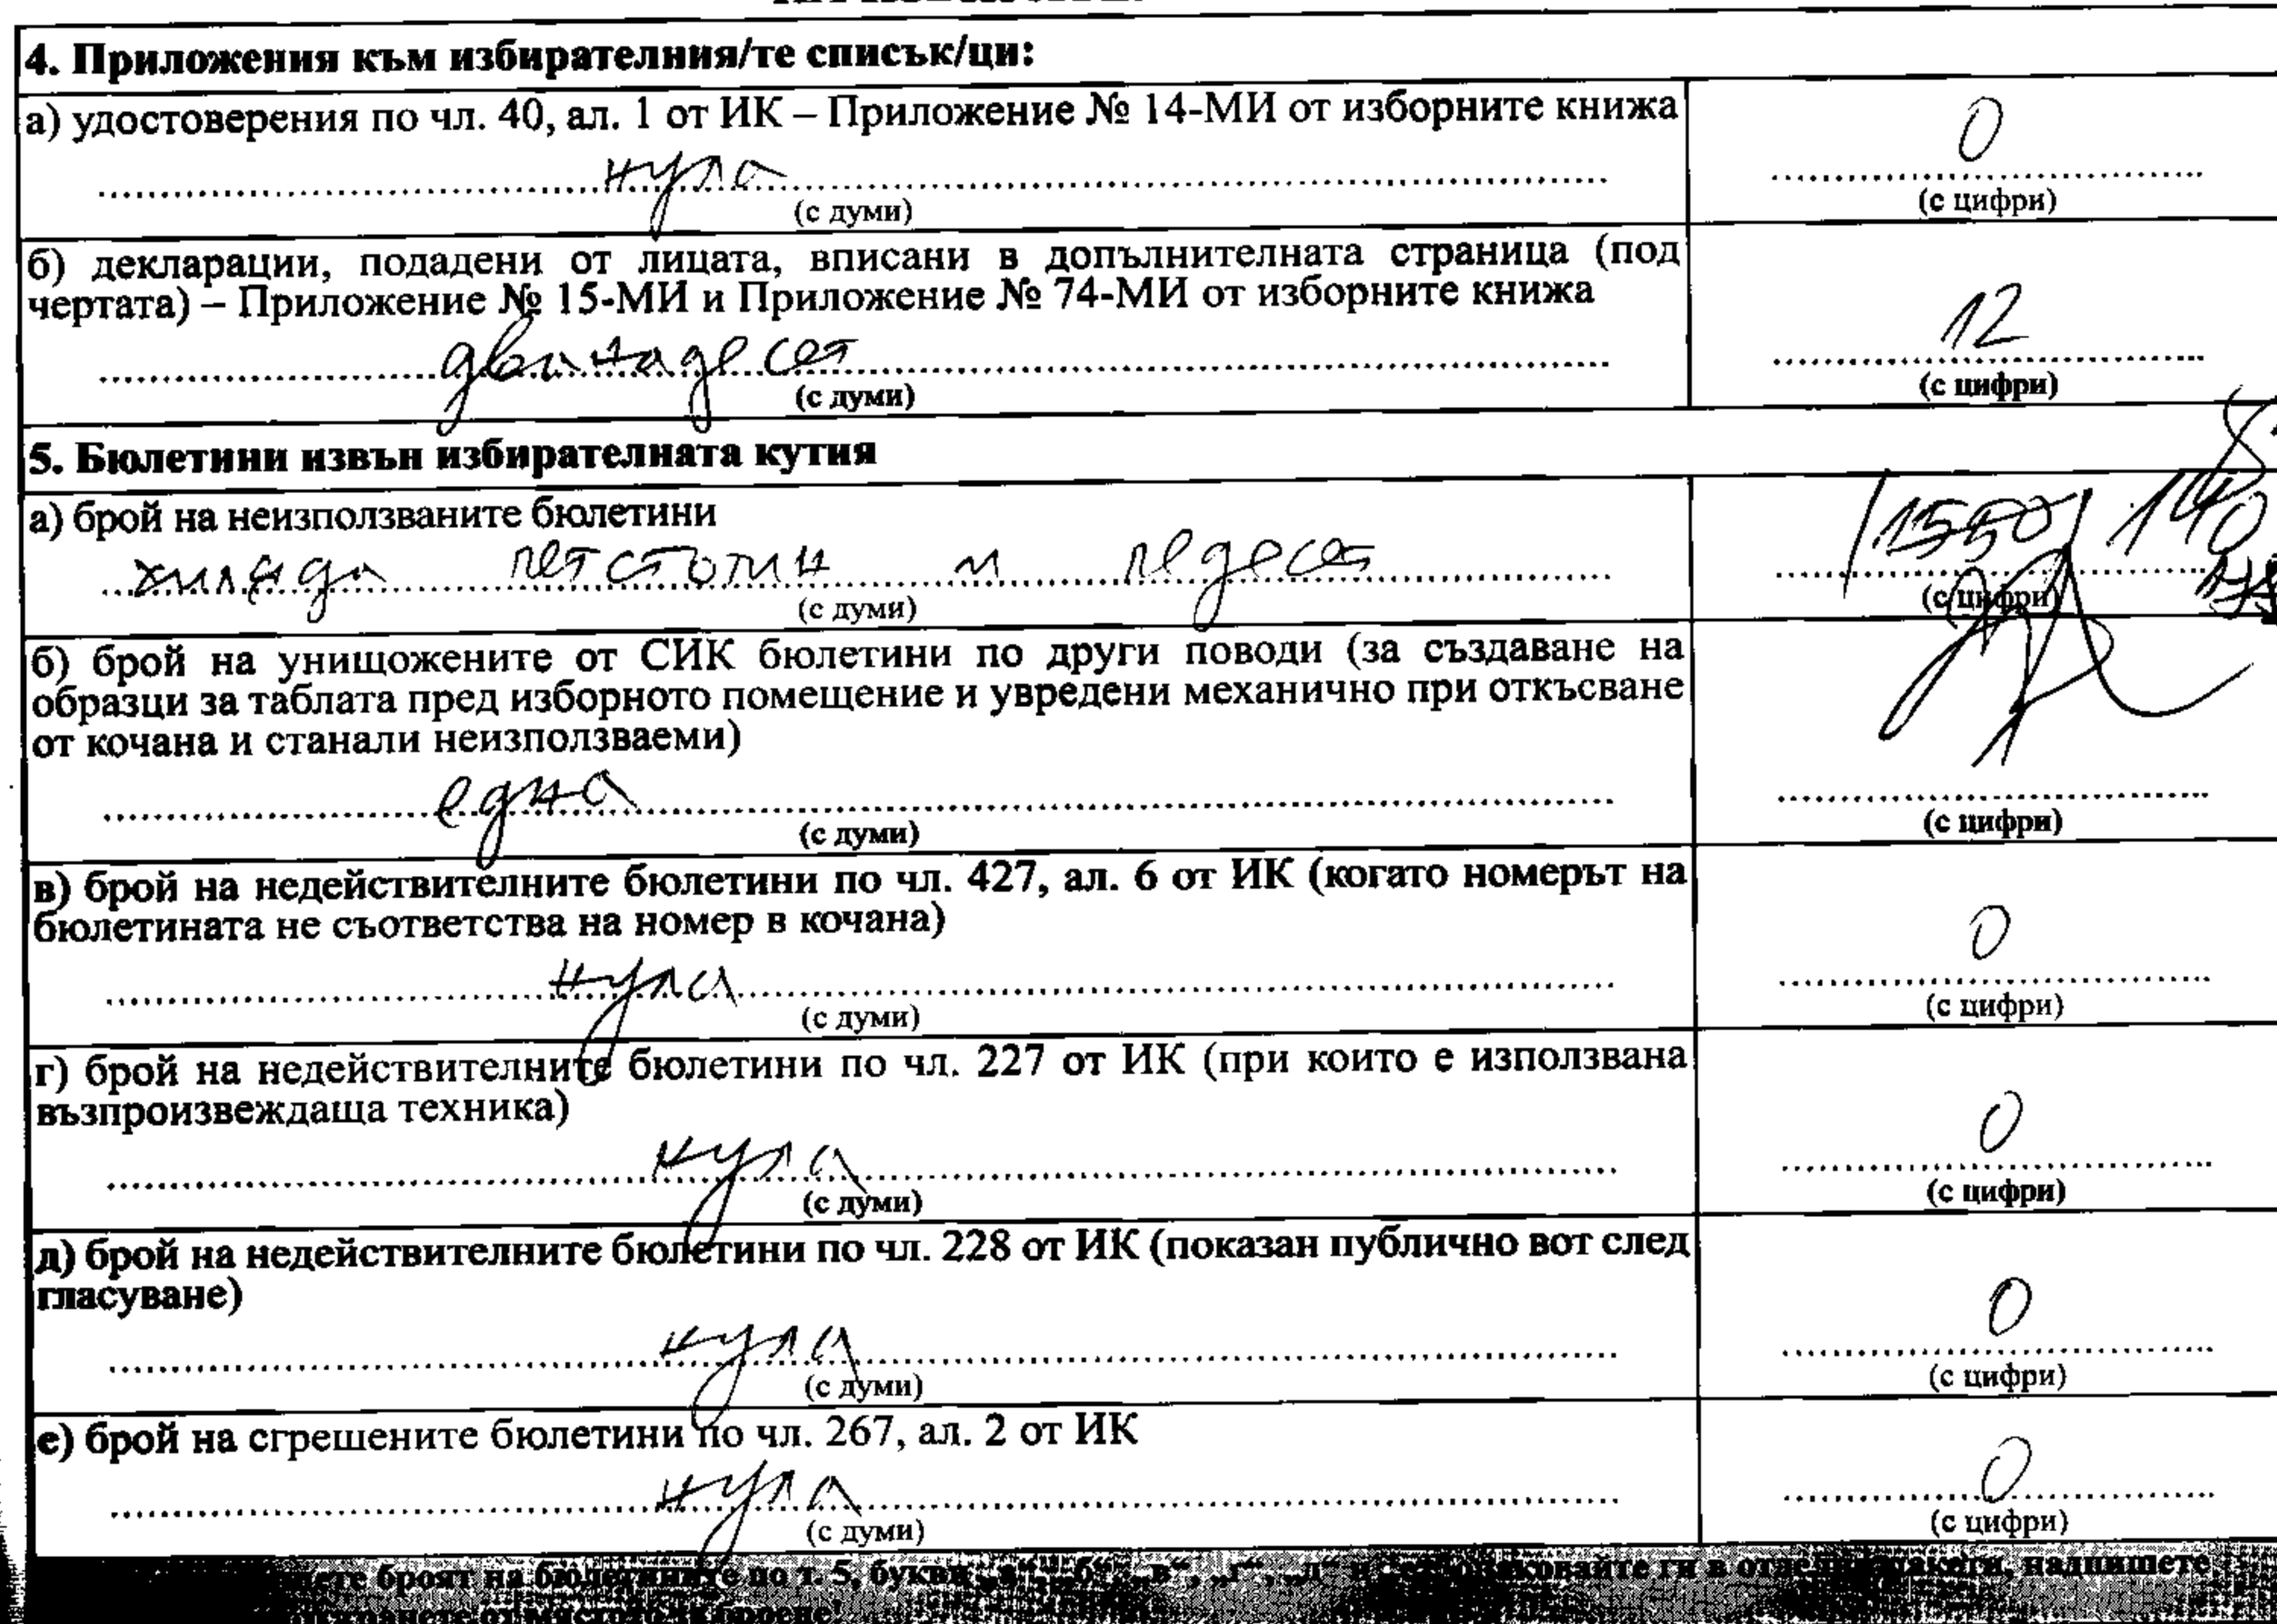 4. Приложения към избирателния/те списък/ци:
а) удостоверения по чл. 40, ал. 1 от ИК – Приложение № 14-МИ от изборните книжа
нула 0
(с думи) (с цифри)
б) декларации, подадени от лицата, вписани в допълнителната страница (под
чертата) – Приложение № 15-МИ и Приложение № 74-МИ от изборните книжа
дванадесет 12
(с думи) (с цифри)
5. Бюлетини извън избирателната кутия
а) брой на неизползваните бюлетини
хиляда петстотин и педесет 1550
(с думи) (с цифри)
б) брой на унищожените от СИК бюлетини по други поводи (за създаване на
образци за таблата пред изборното помещение и увредени механично при откъсване
от кочана и станали неизползваеми)
една 1
(с думи) (с цифри)
в) брой на недействителните бюлетини по чл. 427, ал. 6 от ИК (когато номерът на
бюлетината не съответства на номер в кочана)
нула 0
(с думи) (с цифри)
г) брой на недействителните бюлетини по чл. 227 от ИК (при които е използвана
възпроизвеждаща техника)
нула 0
(с думи) (с цифри)
д) брой на недействителните бюлетини по чл. 228 от ИК (показан публично вот след
гласуване)
нула 0
(с думи) (с цифри)
е) брой на сгрешените бюлетини по чл. 267, ал. 2 от ИК
нула 0
(с думи) (с цифри)
броят на бюлетините по т. 5, букви „а“, „б“, „в“, „г“, „д“ и ги в надпишете